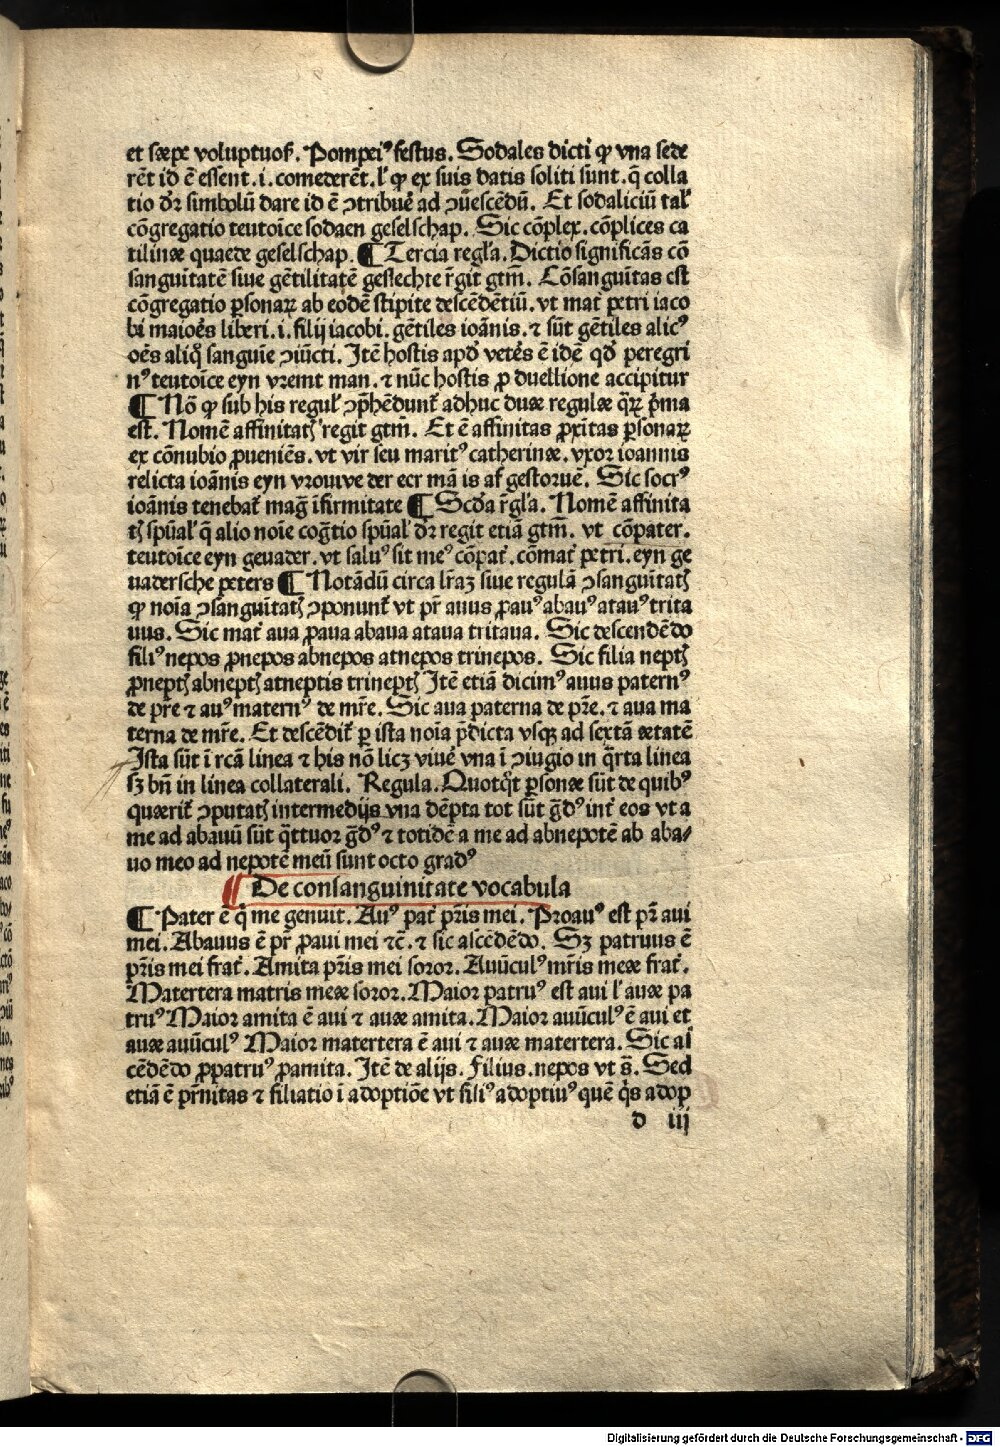 et sæpe voluptuos̃. Pompeiꝰ festus. Sodales dicti ꝙ vna sede
rẽt id ẽ essent. i. comederẽt. ł ꝙ ex suis datis soliti sunt. q̃ colla
tio dr̃ simbolũ dare id ẽ ꝯtribuẽ ad ꝯũescẽdũ. Et sodaliciũ tał
cõgregatio teutoĩce sodaen geselschap. Sic cõplex. cõplices ca
tilinæ quaede geselschap. ¶ Tercia regła. Dictio significãs cõ
sanguĩtatẽ siue gẽtilitatẽ geslechte r̃git gtm̃. Cõsanguĩtas est
cõgregatio ꝑsonaꝝ ab eodẽ stipite descẽdẽtiũ. vt mat̃ petri iaco
bi maioẽs liberi. i. filij iacobi. gẽtiles ioãnis. ⁊ sũt gẽtiles alicꝰ
oẽs aliq̃ sanguĩe ꝯiũcti. Itẽ hostis apđ vetẽs ẽ idẽ qđ peregri
nꝰ teutoĩce eyn vremt man. ⁊ nũc hostis ꝓ duellione accipitur
¶ Nõ ꝙ sub his reguł ꝯp̃hẽdunt̃ adhuc duæ regulæ q̃ꝝ p̃ma
est. Nomẽ affinitatꝭ regit gtm̃. Et ẽ affinitas ꝓxĩtas ꝑsonaꝝ
ex cõnubio ꝓueniẽs. vt vir seu maritꝰ catherinæ. vxor ioannis
relicta ioãnis eyn vrouwe der ecr mã is af gestoruẽ. Sic socrꝰ
ioãnis tenebat̃ mag̃ ĩfirmitate ¶ Scđa r̃gła. Nomẽ affinita
tꝭ spũał q̃ alio noĩe cog̃tio spũał dr̃ regit etiã gtm̃. vt cõpater.
teutoĩce eyn geuader. vt saluꝰ sit meꝰ cõpat̃. cõmat̃ petri. eyn ge
uadersche peters ¶ Notãdũ circa łraꝫ siue regulã ꝯsanguĩtatꝭ
ꝙ noĩa ꝯsanguĩtatꝭ ꝯponunt̃ vt pr̃ auus ꝓauꝰ abauꝰ atauꝰ trita
uus. Sic mat̃ aua ꝓaua abaua ataua tritaua. Sic descendẽdo
filiꝰ nepos ꝓnepos abnepos atnepos trinepos. Sic filia neptꝭ
ꝓneptꝭ abneptꝭ atneptis trineptꝭ Itẽ etiã dicimꝰ auus paternꝰ
de pr̃e ⁊ auꝰ maternꝰ de mr̃e. Sic aua paterna de pr̃e. ⁊ aua ma
terna de mr̃e. Et descẽdit̃ ꝑ ista noĩa p̃dicta vsqꝫ ad sextã ætatẽ
Ista sũt ĩ rcã linea ⁊ his nõ licꝫ viuẽ vna ĩ ꝯiugio in q̃rta linea
sꝫ bñ in linea collaterali. Regula. Quotq̃t ꝑsonæ sũt de quibꝰ
quærit̃ ꝯputatꝭ intermedijs vna dẽpta tot sũt g̃dꝰ int̃ eos vt a
me ad abauũ sũt q̃ttuor g̃dꝰ ⁊ totidẽ a me ad abnepotẽ ab aba⸗
uo meo ad nepotẽ meũ sunt octo gradꝰ
¶ De consanguinitate vocabula
¶ Pater ẽ q̃ me genuit. Auꝰ pat̃ pr̃is mei. Proauꝰ est pr̃ aui
mei. Abauus ẽ pr̃ ꝓaui mei ⁊c̃. ⁊ sic ascẽdẽdo. Sꝫ patruus ẽ
pr̃is mei frat̃. Amita pr̃is mei soror. Auũculꝰ mr̃is meæ frat̃.
Matertera matris meæ soror. Maior patruꝰ est aui ł auæ pa
truꝰ Maior amita ẽ aui ⁊ auæ amita. Maior auũculꝰ ẽ aui et
auæ auũculꝰ Maior matertera ẽ aui ⁊ auæ matertera. Sic as
cẽdẽdo ꝓpatruꝰ ꝓamita. Itẽ de alijs. Filius. nepos vt s̃. Sed
etiã ẽ pr̃nitas ⁊ filiatio ĩ adoptiõe vt filiꝰ adoptiuꝰ quẽ q̃s adop
d iij
Digitalisierung gefördert durch die Deutsche Forschungsgemeinschaft - DFG